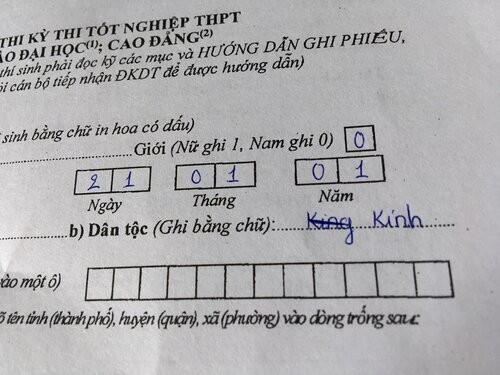 THI KỲ THI TỐT NGHIỆP THPT
ĐẠI HỌC(1); CAO ĐẲNG(2)
thí sinh phải đọc kỹ các mục và HƯỚNG DẪN GHI PHIẾU,
cán bộ tiếp nhận ĐKDT để được hướng dẫn)
sinh bằng chữ in hoa có dấu)
Giới (Nữ ghi 1, Nam ghi 0) 0
2 1 0 1 0 1
Ngày Tháng Năm
b) Dân tộc (Ghi bằng chữ): King Kinh
vào một ô)
tên tỉnh (thành phố), huyện (quận), xã (phường) vào dòng trống sau: